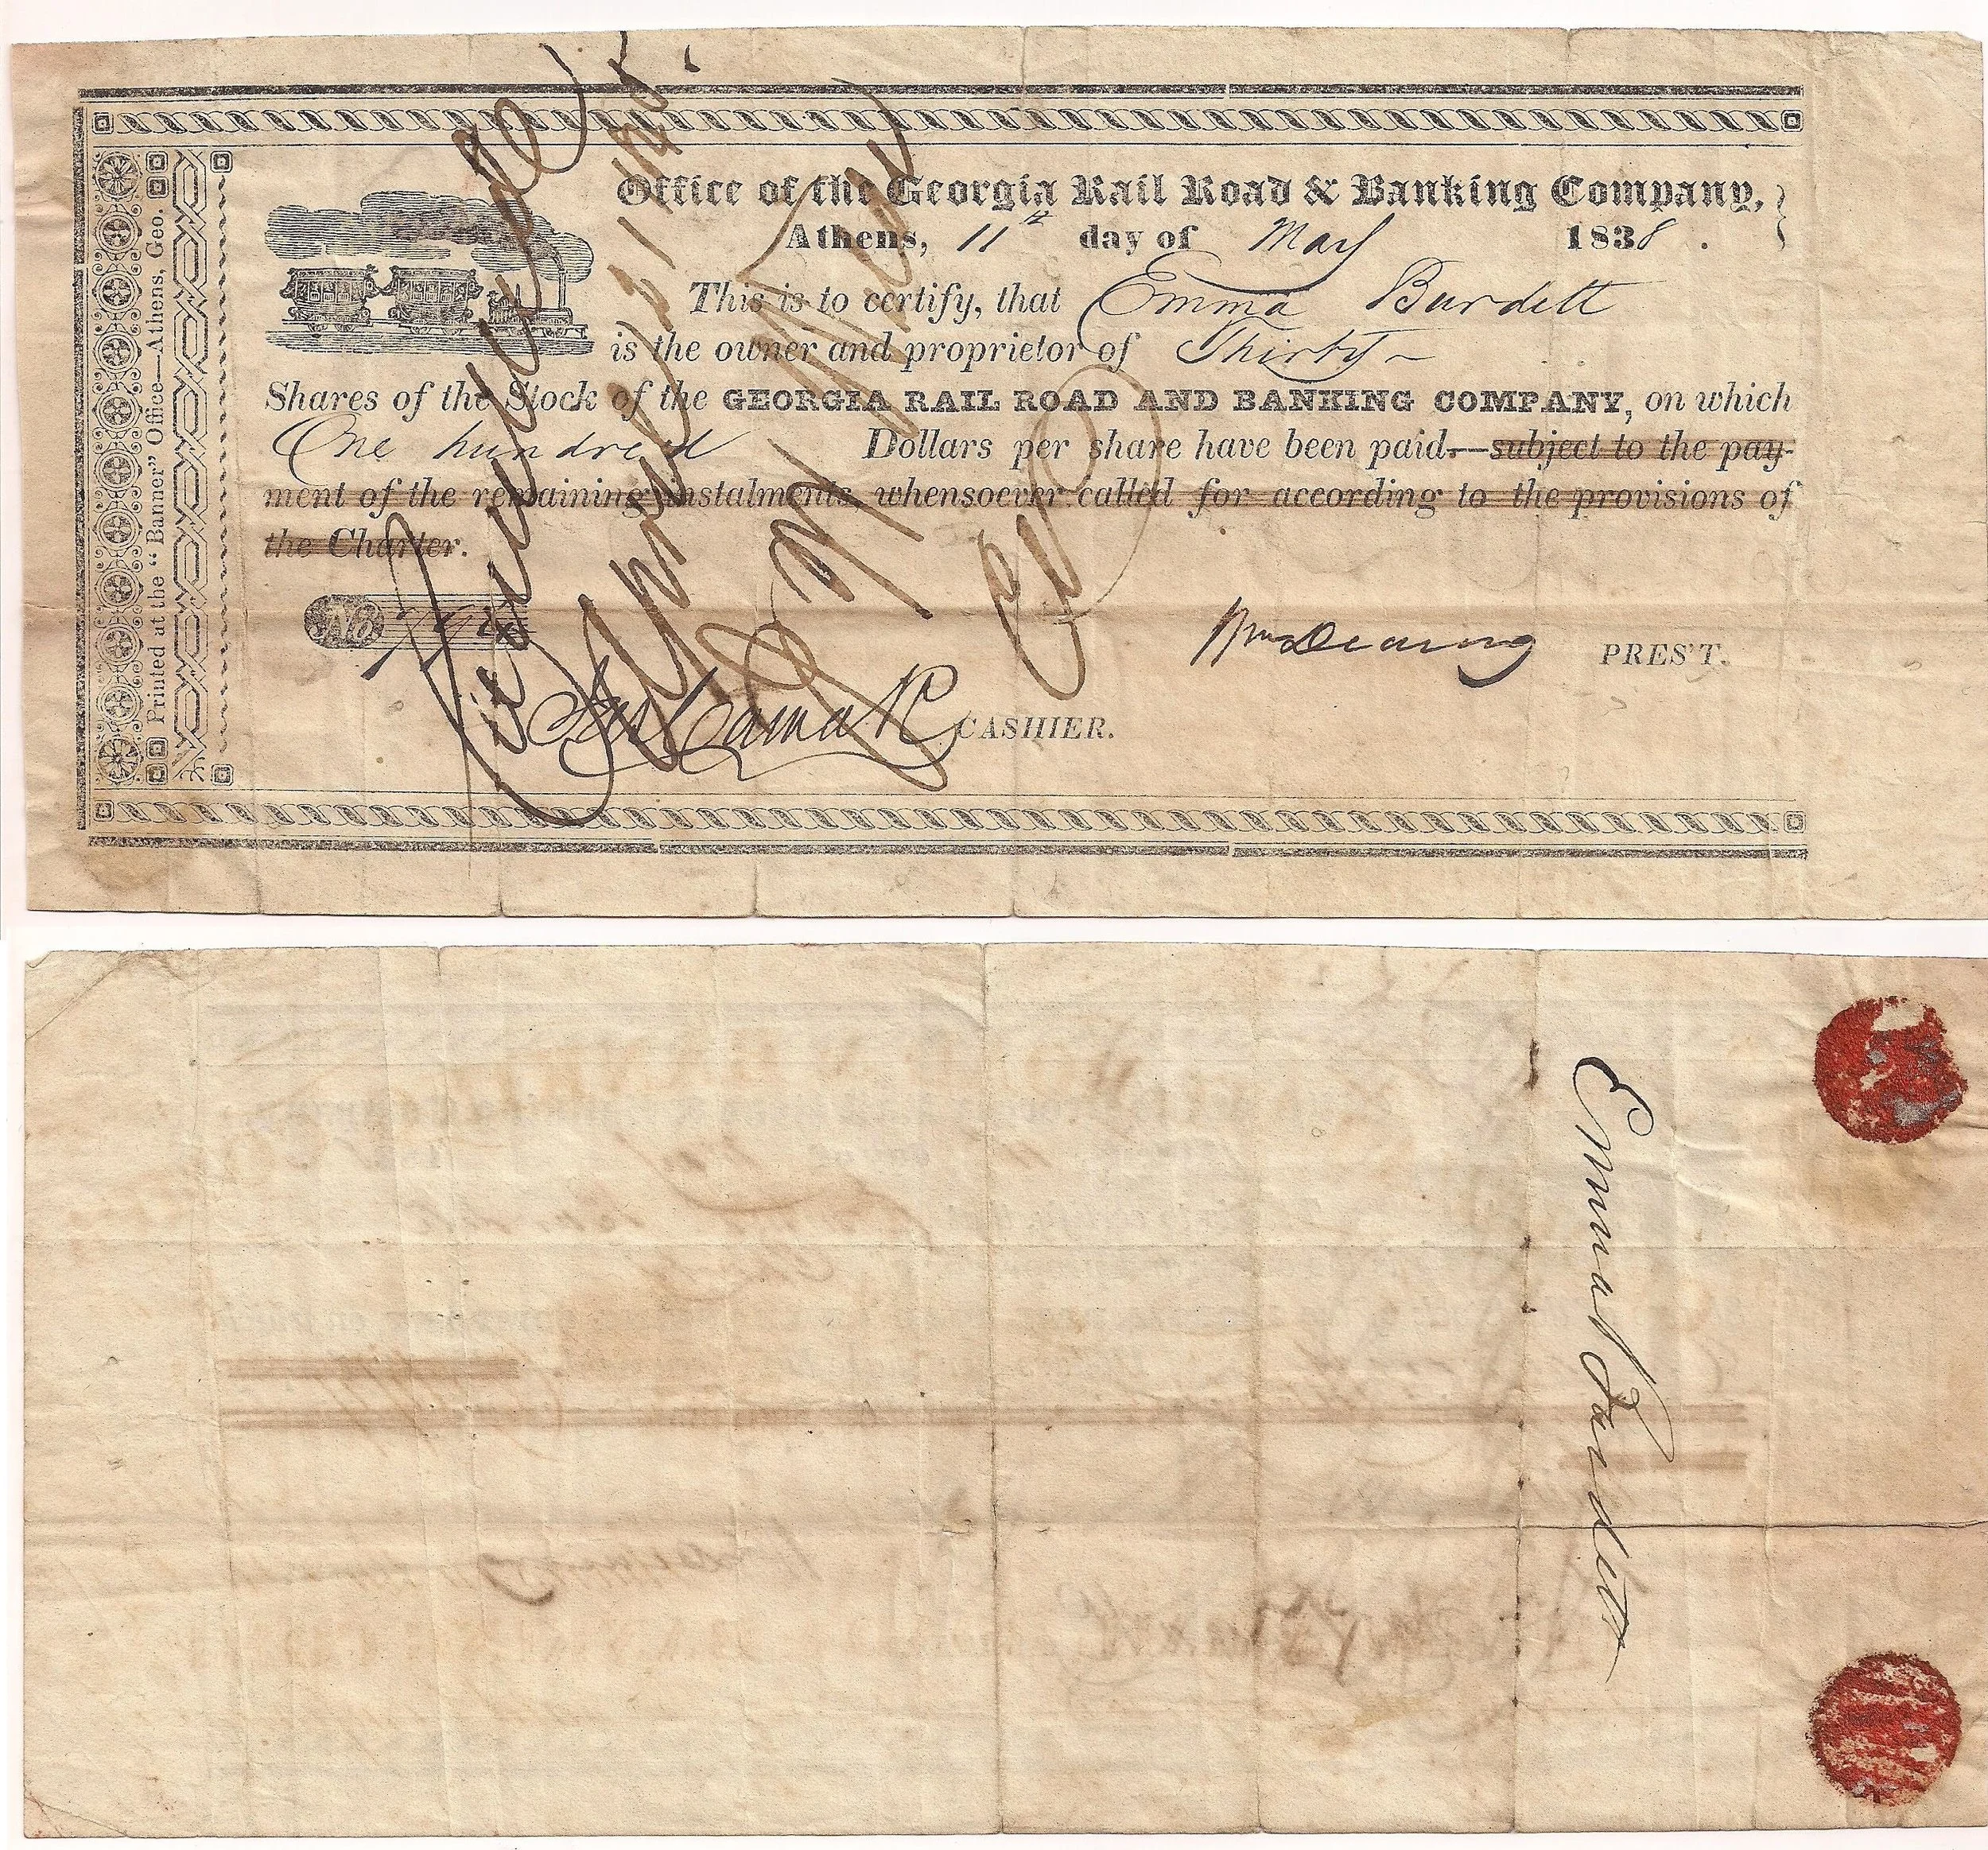 Office of the Georgia Rail Road & Banking Company,
Athens, 11th day of May 1838.
This is to certify, that Emma Burdett
is the owner and proprietor of Thirty
Shares of the Stock of the GEORGIA RAIL ROAD AND BANKING COMPANY, on which
One hundred Dollars per share have been paid—subject to the pay-
ment of the remaining instalments, whensoever called for according to the provisions of
the Charter.
No
Wm Dearing PRES'T.
Jas Camak CASHIER.
Printed at the "Banner" Office—Athens, Geo.
April 21
Emma Burdett